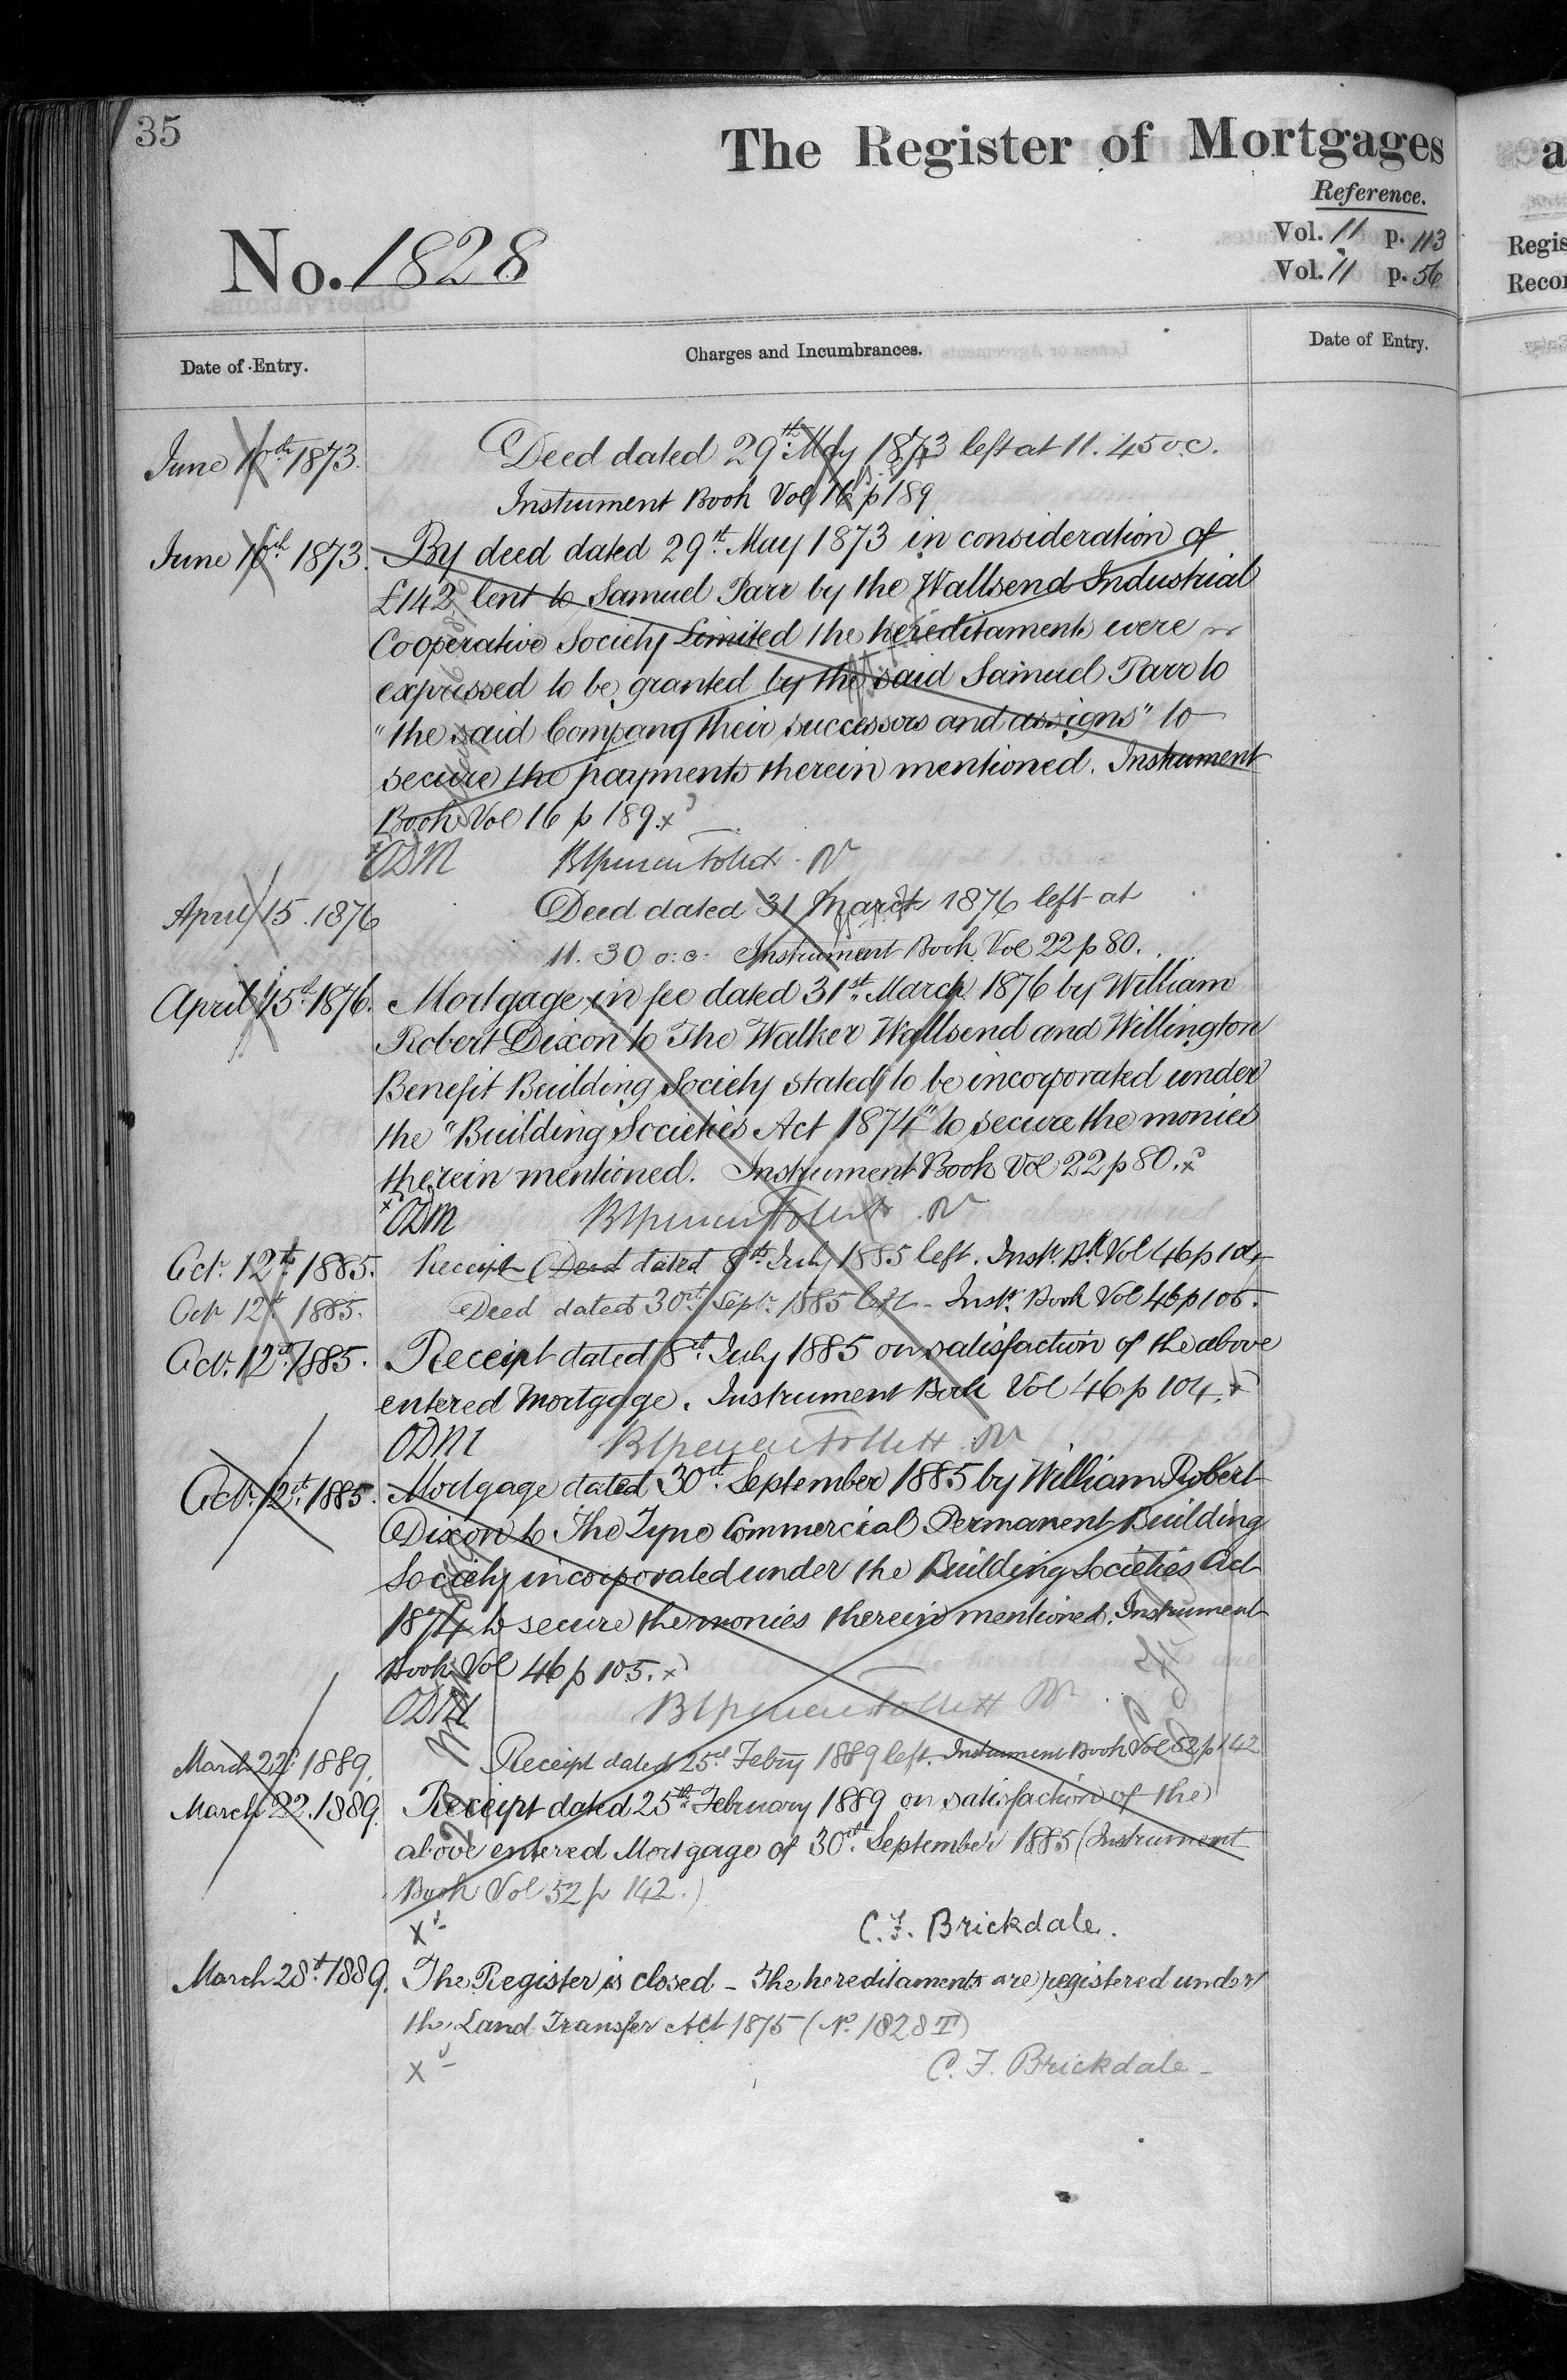 35
The Register of Mortgages
Reference.
No. 1828
Vol. 11 p. 113
Vol. 11 p. 56
Date of Entry.
Charges and Incumbrances.
Date of Entry.
June 10th 1873.
Deed dated 29th May 1873 left at 11.45 o.c.
Instrument Book Vol 16 p 189
June 10th 1873.
By deed dated 29th May 1873 in consideration of
£142 lent to Samuel Parr by the Wallsend Industrial
Cooperative Society Limited the hereditaments were
expressed to be granted by the said Samuel Parr to
"the said Company their successors and assigns" to
secure the payments therein mentioned. Instrument
Book Vol 16 p 189.x
ODM
April 15. 1876
Deed dated 31 March 1876 left at
11.30 o.c. Instrument Book Vol 22 p 80.
April 15th 1876.
Mortgage in fee dated 31st March 1876 by William
Robert Dixon to The Walker Wallsend and Willington
Benefit Building Society stated to be incorporated under
the "Building Societies Act 1874" to secure the monies
therein mentioned. Instrument Book Vol 22 p 80.x
x ODM
Oct. 12th 1885.
Receipt (Deed dated 8th July 1885 left. Instt. Bk Vol 46 p 104
Oct 12th 1885.
Deed dated 30th Septr. 1885 left - Instt. Book Vol 46 p 105.
Oct. 12th 1885.
Receipt dated 8th July 1885 on satisfaction of the above
entered Mortgage. Instrument Book Vol 46 p 104.x
ODM
Oct. 12th 1885.
Mortgage dated 30th September 1885 by William Robert
Dixon to The Tyne Commercial Permanent Building
Society incorporated under the Building Societies Act
1874 to secure the monies therein mentioned. Instrument
Book Vol 46 p 105.x
ODM
March 22. 1889.
Receipt dated 25th Feby 1889 left. Instrument Book Vol 52 p 142
March 22. 1889.
Receipt dated 25th February 1889 on satisfaction of the
above entered Mortgage of 30th September 1885 (Instrument
Book Vol 52 p 142.)
x
C. F. Brickdale.
March 28th 1889.
The Register is closed - The hereditaments are registered under
the Land Transfer Act 1875 (No. 1828 T)
x
C. F. Brickdale -
a
Regis
Recor